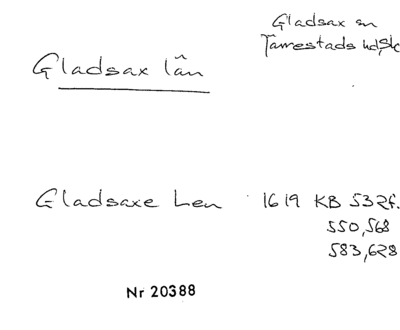 Gladsax sn
Järrestads hd, Sk
Gladsax län
Gladsaxe Len 1619 KB 532f.
550,568
583,628
Nr 20388